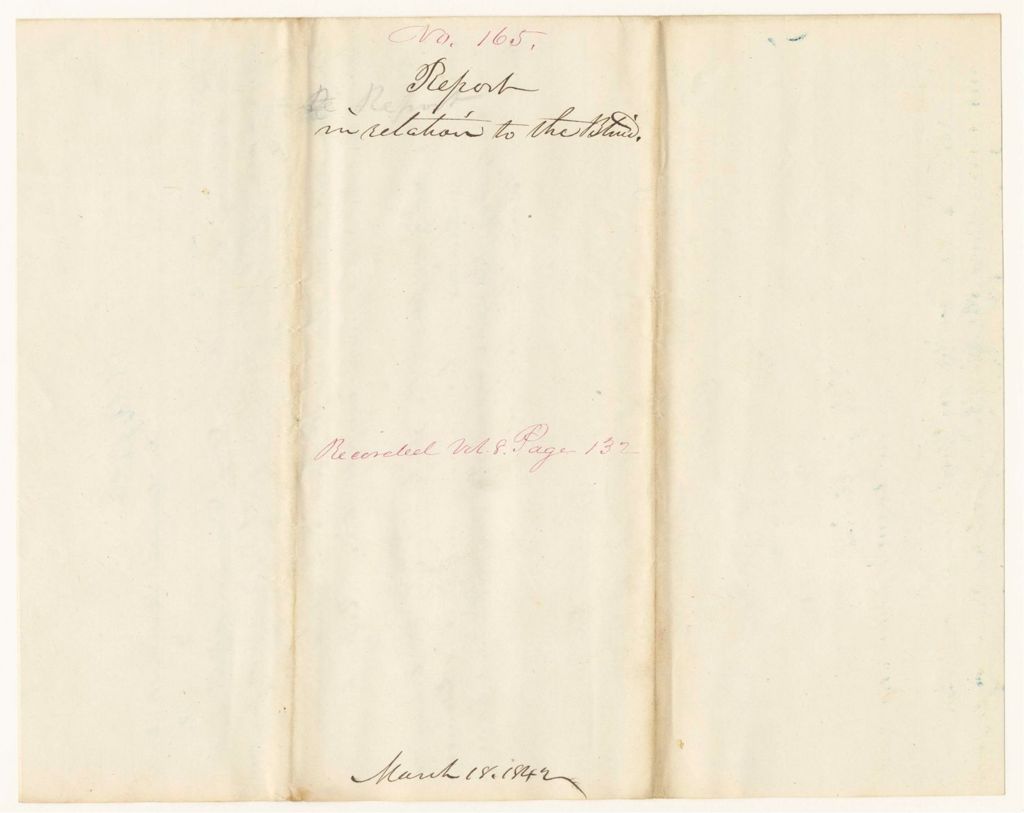 No. 165.
Report
Report
in relation to the Blind.
Recorded Vol 8. Page 132
March 18. 1842